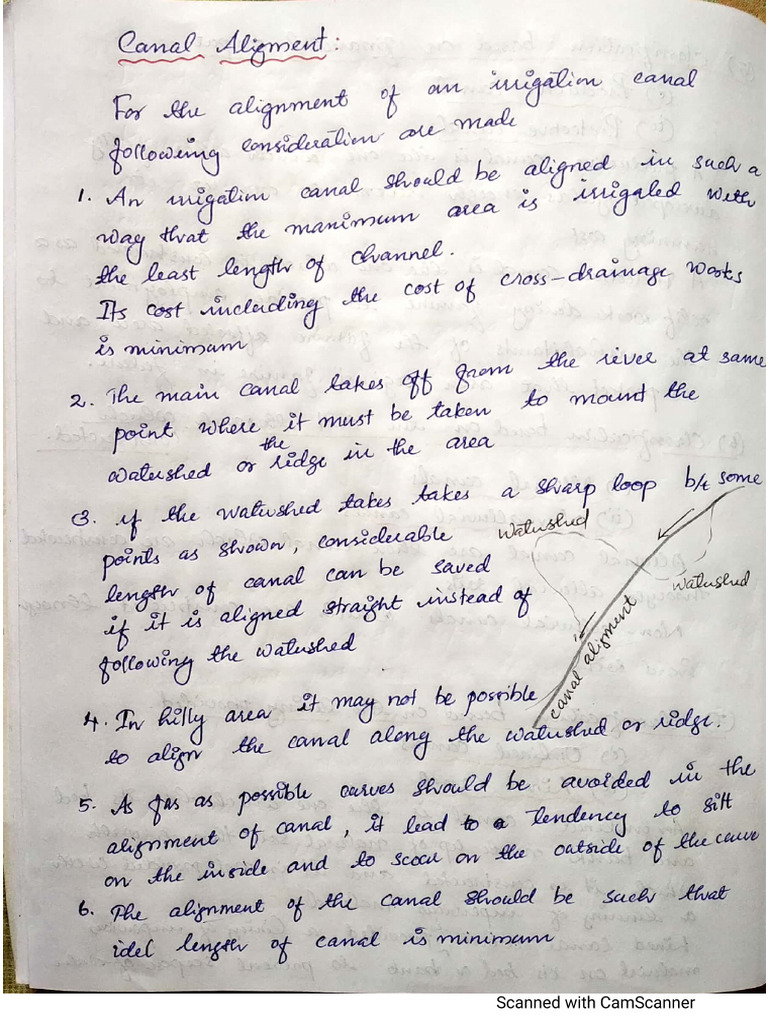 Canal Aligment:
For the alignment of an irrigation canal
following consideration are made
1. An irrigation canal should be aligned in such a
way that the maximum area is irrigated with
the least length of channel.
Its cost including the cost of cross-drainage works
is minimum
2. The main canal takes off from the river at same
point where it must be taken to mount the
watershed or the ridge in the area
3. if the watushed takes takes a sharp loop b/t some
points as shown, considerable
length of canal can be saved
if it is aligned straight instead of
following the watushed
watushed
watushed
canal aligment
4. In hilly area it may not be possible
to align the canal along the watushed or ridge.
5. As far as possible curves should be avoided in the
alignment of canal, it lead to a Tendency to silt
on the inside and to scour on the outside of the curve
6. The alignment of the canal should be such that
idel length of canal is minimum
Scanned with CamScanner